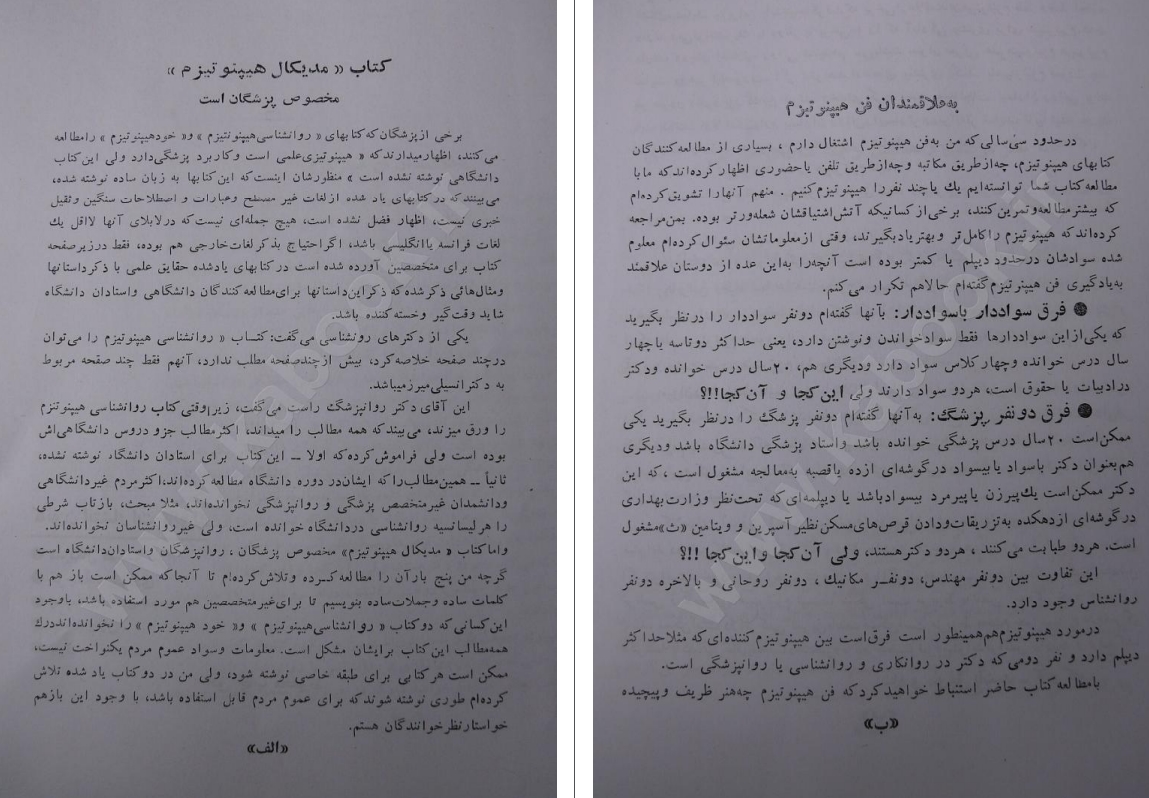 کتاب « مدیکال هیپنوتیزم »
مخصوص پزشگان است
برخی از پزشگان که کتابهای « روانشناسی هیپنوتیزم » و « خودهیپنوتیزم » را مطالعه
می‌کنند، اظهار میدارند که « هیپنوتیزی علمی است و کاربرد پزشگی دارد ولی این کتاب
دانشگاهی نوشته نشده است » منظورشان اینست که این کتابها به زبان ساده نوشته شده،
می‌بینند که در کتابهای یاد شده از لغات غیر مسطح و عبارات و اصطلاحات سنگین و ثقیل
خبری نیست، اظهار فضل نشده است، هیچ جمله‌ای نیست که در لابلای آنها لااقل یك
لغات فرانسه یا انگلیسی باشد، اگر احتیاج بذکر لغات خارجی هم بوده، فقط در زیر صفحه
کتاب برای متخصصین آورده شده است در کتابهای یاد شده حقایق علمی با ذکر داستانها
و مثال‌هائی ذکر شده که ذکر این داستانها برای مطالعه کنندگان دانشگاهی و استادان دانشگاه
شاید وقت‌گیر و خسته کننده باشد.
یکی از دکترهای روانشناسی می‌گفت: کتاب « روانشناسی هیپنوتیزم را می‌توان
در چند صفحه خلاصه کرد، بیش از چند صفحه مطلب ندارد، آنهم فقط چند صفحه مربوط
به دکتر انسیلی میرزمیباشد.
این آقای دکتر روانپزشگ راست می‌گفت، زیرا وقتی کتاب روانشناسی هیپنوتنزم
را ورق میزند، می‌بیند که همه مطالب را میداند، اکثر مطالب جزو دروس دانشگاهی‌اش
بوده است ولی فراموش کرده که اولا ــ این کتاب برای استادان دانشگاه نوشته نشده،
ثانیاً ــ همین مطالب را که ایشان در دوره دانشگاه مطالعه کرده‌اند، اکثر مردم غیر دانشگاهی
و دانشمندان غیر متخصص پزشگی و روانپزشگی نخوانده‌اند، مثلا مبحث، بازتاب شرطی
را هر لیسانسیه روانشناسی در دانشگاه خوانده است، ولی غیر روانشناسان نخوانده‌اند.
و اما کتاب « مدیکال هیپنوتیزم» مخصوص پزشگان ، روانپزشگان و استادان دانشگاه است
گرچه من پنج بار آن را مطالعه کرده و تلاش کرده‌ام تا آنجا که ممکن است باز هم با
کلمات ساده و جملات ساده بنویسیم تا برای غیر متخصصین هم مورد استفاده باشد، با وجود
این کسانی که دو کتاب « روانشناسی هیپنوتیزم » و « خود هیپنوتیزم » را نخوانده‌اند درك
همه مطالب این کتاب برایشان مشکل است. معلومات و سواد عموم مردم یکنواخت نیست،
ممکن است هر کتابی برای طبقه خاصی نوشته شود، ولی من در دو کتاب یاد شده تلاش
کرده‌ام طوری نوشته شوند که برای عموم مردم قابل استفاده باشد، با وجود این باز هم
خواستار نظر خوانندگان هستم.
«الف»
به‌علاقمندان فن هیپنوتیزم
در حدود سی سالی که من به فن هیپنوتیزم اشتغال دارم ، بسیاری از مطالعه کنندگان
کتابهای هیپنوتیزم، چه از طریق مکاتبه و چه از طریق تلفن یا حضوری اظهار کرده‌اند که ما با
مطالعه کتاب شما توانسته‌ایم یك یا چند نفر را هیپنوتیزم کنیم . منهم آنها را تشویق کرده‌ام
که بیشتر مطالعه و تمرین کنند، برخی از کسانیکه آتش اشتیاقشان شعله‌ورتر بوده، بمن مراجعه
کرده‌اند که هیپنوتیزم را کامل‌تر و بهتر یاد بگیرند، وقتی از معلوماتشان سئوال کرده‌ام معلوم
شده سوادشان در حدود دیپلم یا کمتر بوده است آنچه را به این عده از دوستان علاقمند
به یادگیری فن هیپنوتیزم گفته‌ام حالا هم تکرار می‌کنم.
● فرق سواددار باسواددار: بآنها گفته‌ام دونفر سواددار را در نظر بگیرید
که یکی از این سواددارها فقط سواد خواندن و نوشتن دارد، یعنی حداکثر دو تا سه یا چهار
سال درس خوانده و چهار کلاس سواد دارد و دیگری هم، ۲۰ سال درس خوانده و دکتر
در ادبیات یا حقوق است، هر دو سواد دارند ولی این کجا و آن کجا!!!؟
● فرق دونفر پزشگ: به آنها گفته‌ام دونفر پزشگ را در نظر بگیرید یکی
ممکن است ۲۰ سال درس پزشگی خوانده باشد و استاد پزشگی دانشگاه باشد و دیگری
هم بعنوان دکتر باسواد یا بیسواد در گوشه‌ای از ده یا قصبه به معالجه مشغول است ، که این
دکتر ممکن است یك پیرزن یا پیرمرد بیسواد باشد یا دیپلمه‌ای که تحت نظر وزارت بهداری
در گوشه‌ای از دهکده به تزریقات و دادن قرص‌های مسکن نظیر آسپرین و ویتامین «ث» مشغول
است. هر دو طبابت می‌کنند ، هر دو دکتر هستند، ولی آن کجا و این کجا !!!؟
این تفاوت بین دونفر مهندس، دونفر مکانیك ، دونفر روحانی و بالاخره دونفر
روانشناس وجود دارد.
در مورد هیپنوتیزم هم همینطور است فرق است بین هیپنوتیزم کننده‌ای که مثلا حداکثر
دیپلم دارد و نفر دومی که دکتر در روانکاری و روانشناسی یا روانپزشگی است.
با مطالعه کتاب حاضر استنباط خواهید کرد که فن هیپنوتیزم چه هنر ظریف و پیچیده
«ب»